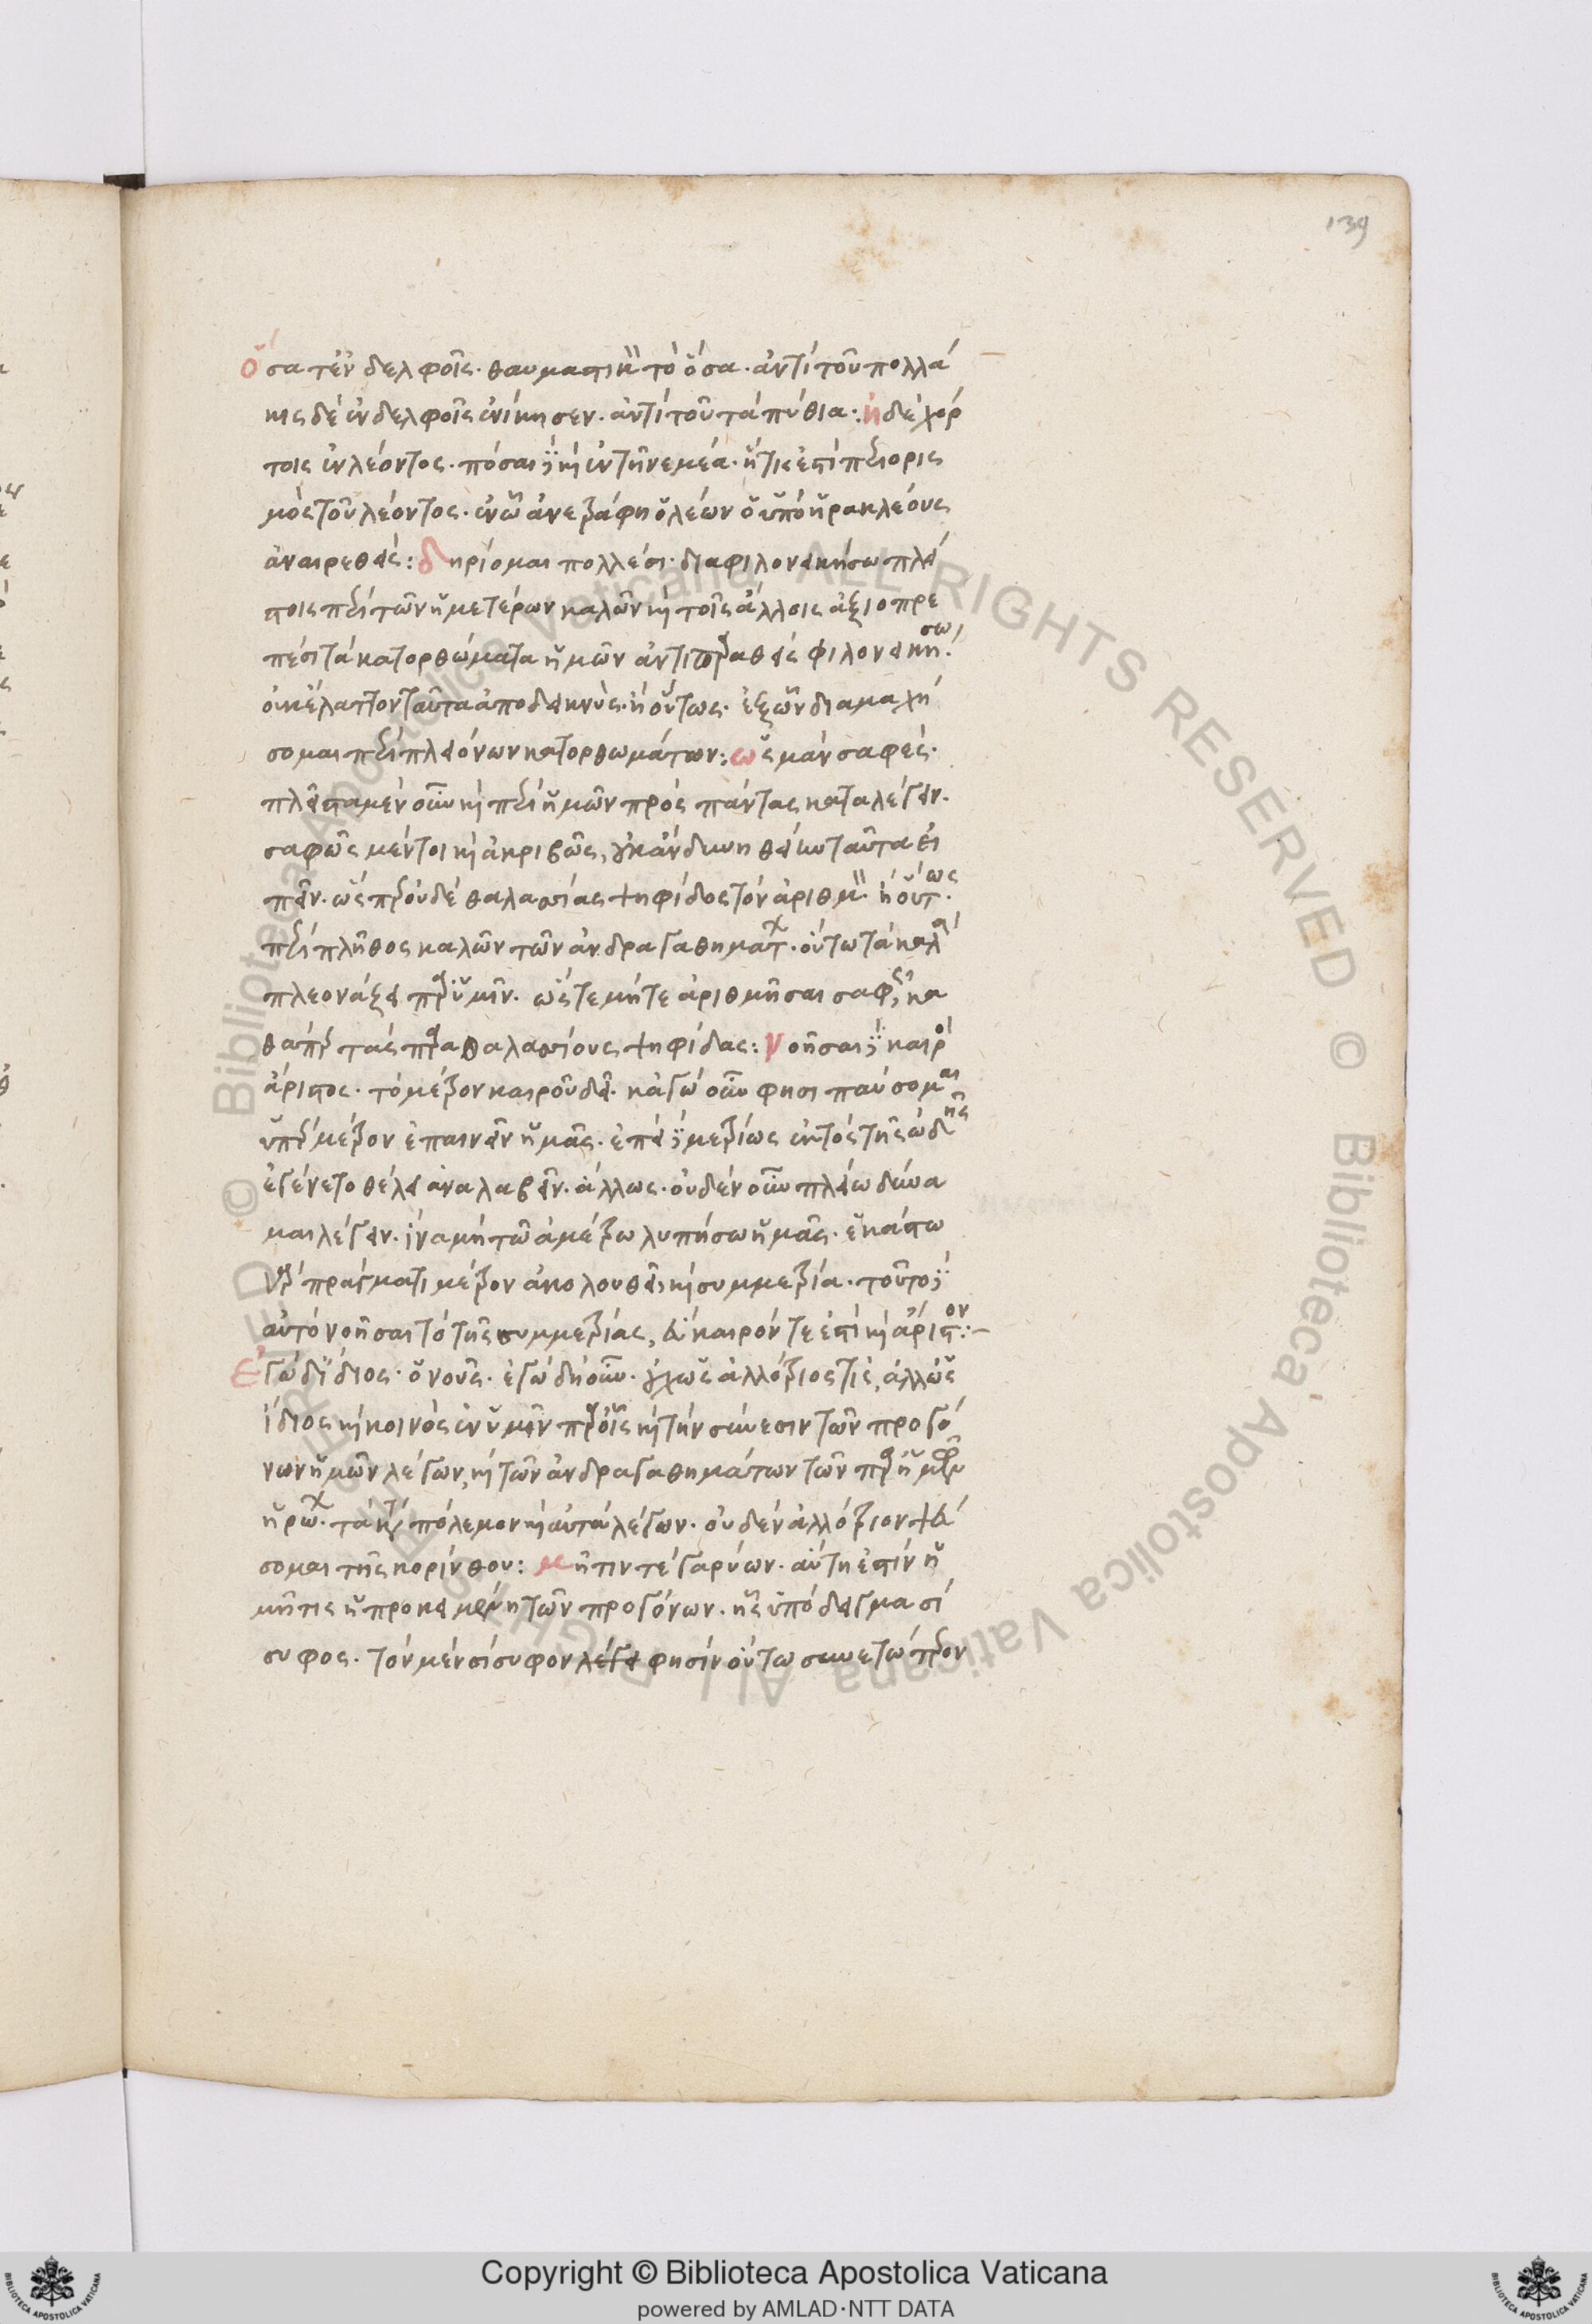 139
ὅσα τ' ἐν δελφοῖς. θαυμαστικ τὸ ὅσα. ἀντὶ τοῦ πολλά
κις δὲ ἐν δελφοῖς ἐνίκησεν. ἀντὶ τοῦ τὰ πύθια: ἠδὲ χόρ
τοις ἐν λέοντος. πόσαι γὰρ καὶ ἐν τῆ νεμέα. ἥτις ἐστὶ περιορισ
μὸς τοῦ λέοντος. ἐν ὧ ἀνετράφη ὁ λέων ὁ ὑπὸ ἡρακλέους
ἀναιρεθείς: δηρίομαι πολλέσι. διαφιλονεικήσω πλεί
στοις περὶ τῶν ὑμετέρων καλῶν καὶ τοῖς ἄλλοις ἀξιοπρε
πέσι τὰ κατορθώματα ὑμῶν ἀντιπαραθεὶς φιλονεικήσω.
οὐκ ἔλαττον ταῦτα ἀποδεικνύς. ἢ οὕτως. ἐξ ὧν διαμαχή
σομαι περὶ πλειόνων κατορθωμάτων: ὡς μὰν σαφές.
πλεῖστα μὲν οὖν καὶ περὶ ὑμῶν πρὸς πάντας καταλέγειν.
σαφῶς μέντοι καὶ ἀκριβῶς, οὐκ ἂν δυνηθείην ταῦτα εἰ
πεῖν. ὥσπερ οὐδὲ θαλασσίας ψηφίδος τὸν ἀριθμ. ἢ οὕτως.
περὶ πλῆθος καλῶν τῶν ἀνδραγαθημάτων. οὕτω τὰ καλὰ
πλεονάζει παρ' ὑμῖν. ὥστε μήτε ἀριθμῆσαι σαφῶς, κα
θάπερ τὰς παραθαλασσίους ψηφίδας: νοῆσαι γὰρ καιρὸ
ἄριστος. τὸ μέτρον καιροῦ δεῖ. κἀγὼ οὖν φησι παύσομαι
ὑπὲρ μέτρον ἐπαινεῖν ὑμᾶς. ἐπεὶ γὰρ μετρίως ἐντὸς τῆς ὠδῆς
ἐγένετο θέλει ἀναλαβεῖν. ἄλλως. οὐδὲν οὖν πλείω δύνα
μαι λέγειν. ἵνα μὴ τῶ ἀμέτρω λυπήσω ὑμᾶς. ἑκάστω
γὰρ πράγματι μέτρον ἀκολουθεῖ, καὶ συμμετρία. τοῦτο γὰρ
αὐτὸ νοῆσαι τὸ τῆς συμμετρίας, εὔκαιρόν τε ἐστὶ καὶ ἄριστον:-
ἐγὼ δ' ἴδιος. ὁ νοῦς. ἐγὼ δὴ οὖν. οὐχ ὡς ἀλλότριος τίς, ἀλλ' ὡς
ἴδιος καὶ κοινὸς ἐν ὑμῖν παροῦσι καὶ τὴν σύνεσιν τῶν προγό
νων ὑμῶν λέγων, καὶ τῶν ἀνδραγαθημάτων τῶν παρ' ὑμετέρων
ἡρώων. τὰ κατὰ πόλεμον καὶ αὐτὰ λέγων. οὐδὲν ἀλλότριον ψεύ
σομαι τῆς κορίνθου: μῆτίν τε γαρύων. αὕτη ἐστὶν ἡ
μῆτις ἡ προκειμένη τῶν προγόνων. ἧς ὑπόδειγμα σί
συφος. τὸν μὲν σίσυφον λέγει φησὶν οὕτω συνετώτερον